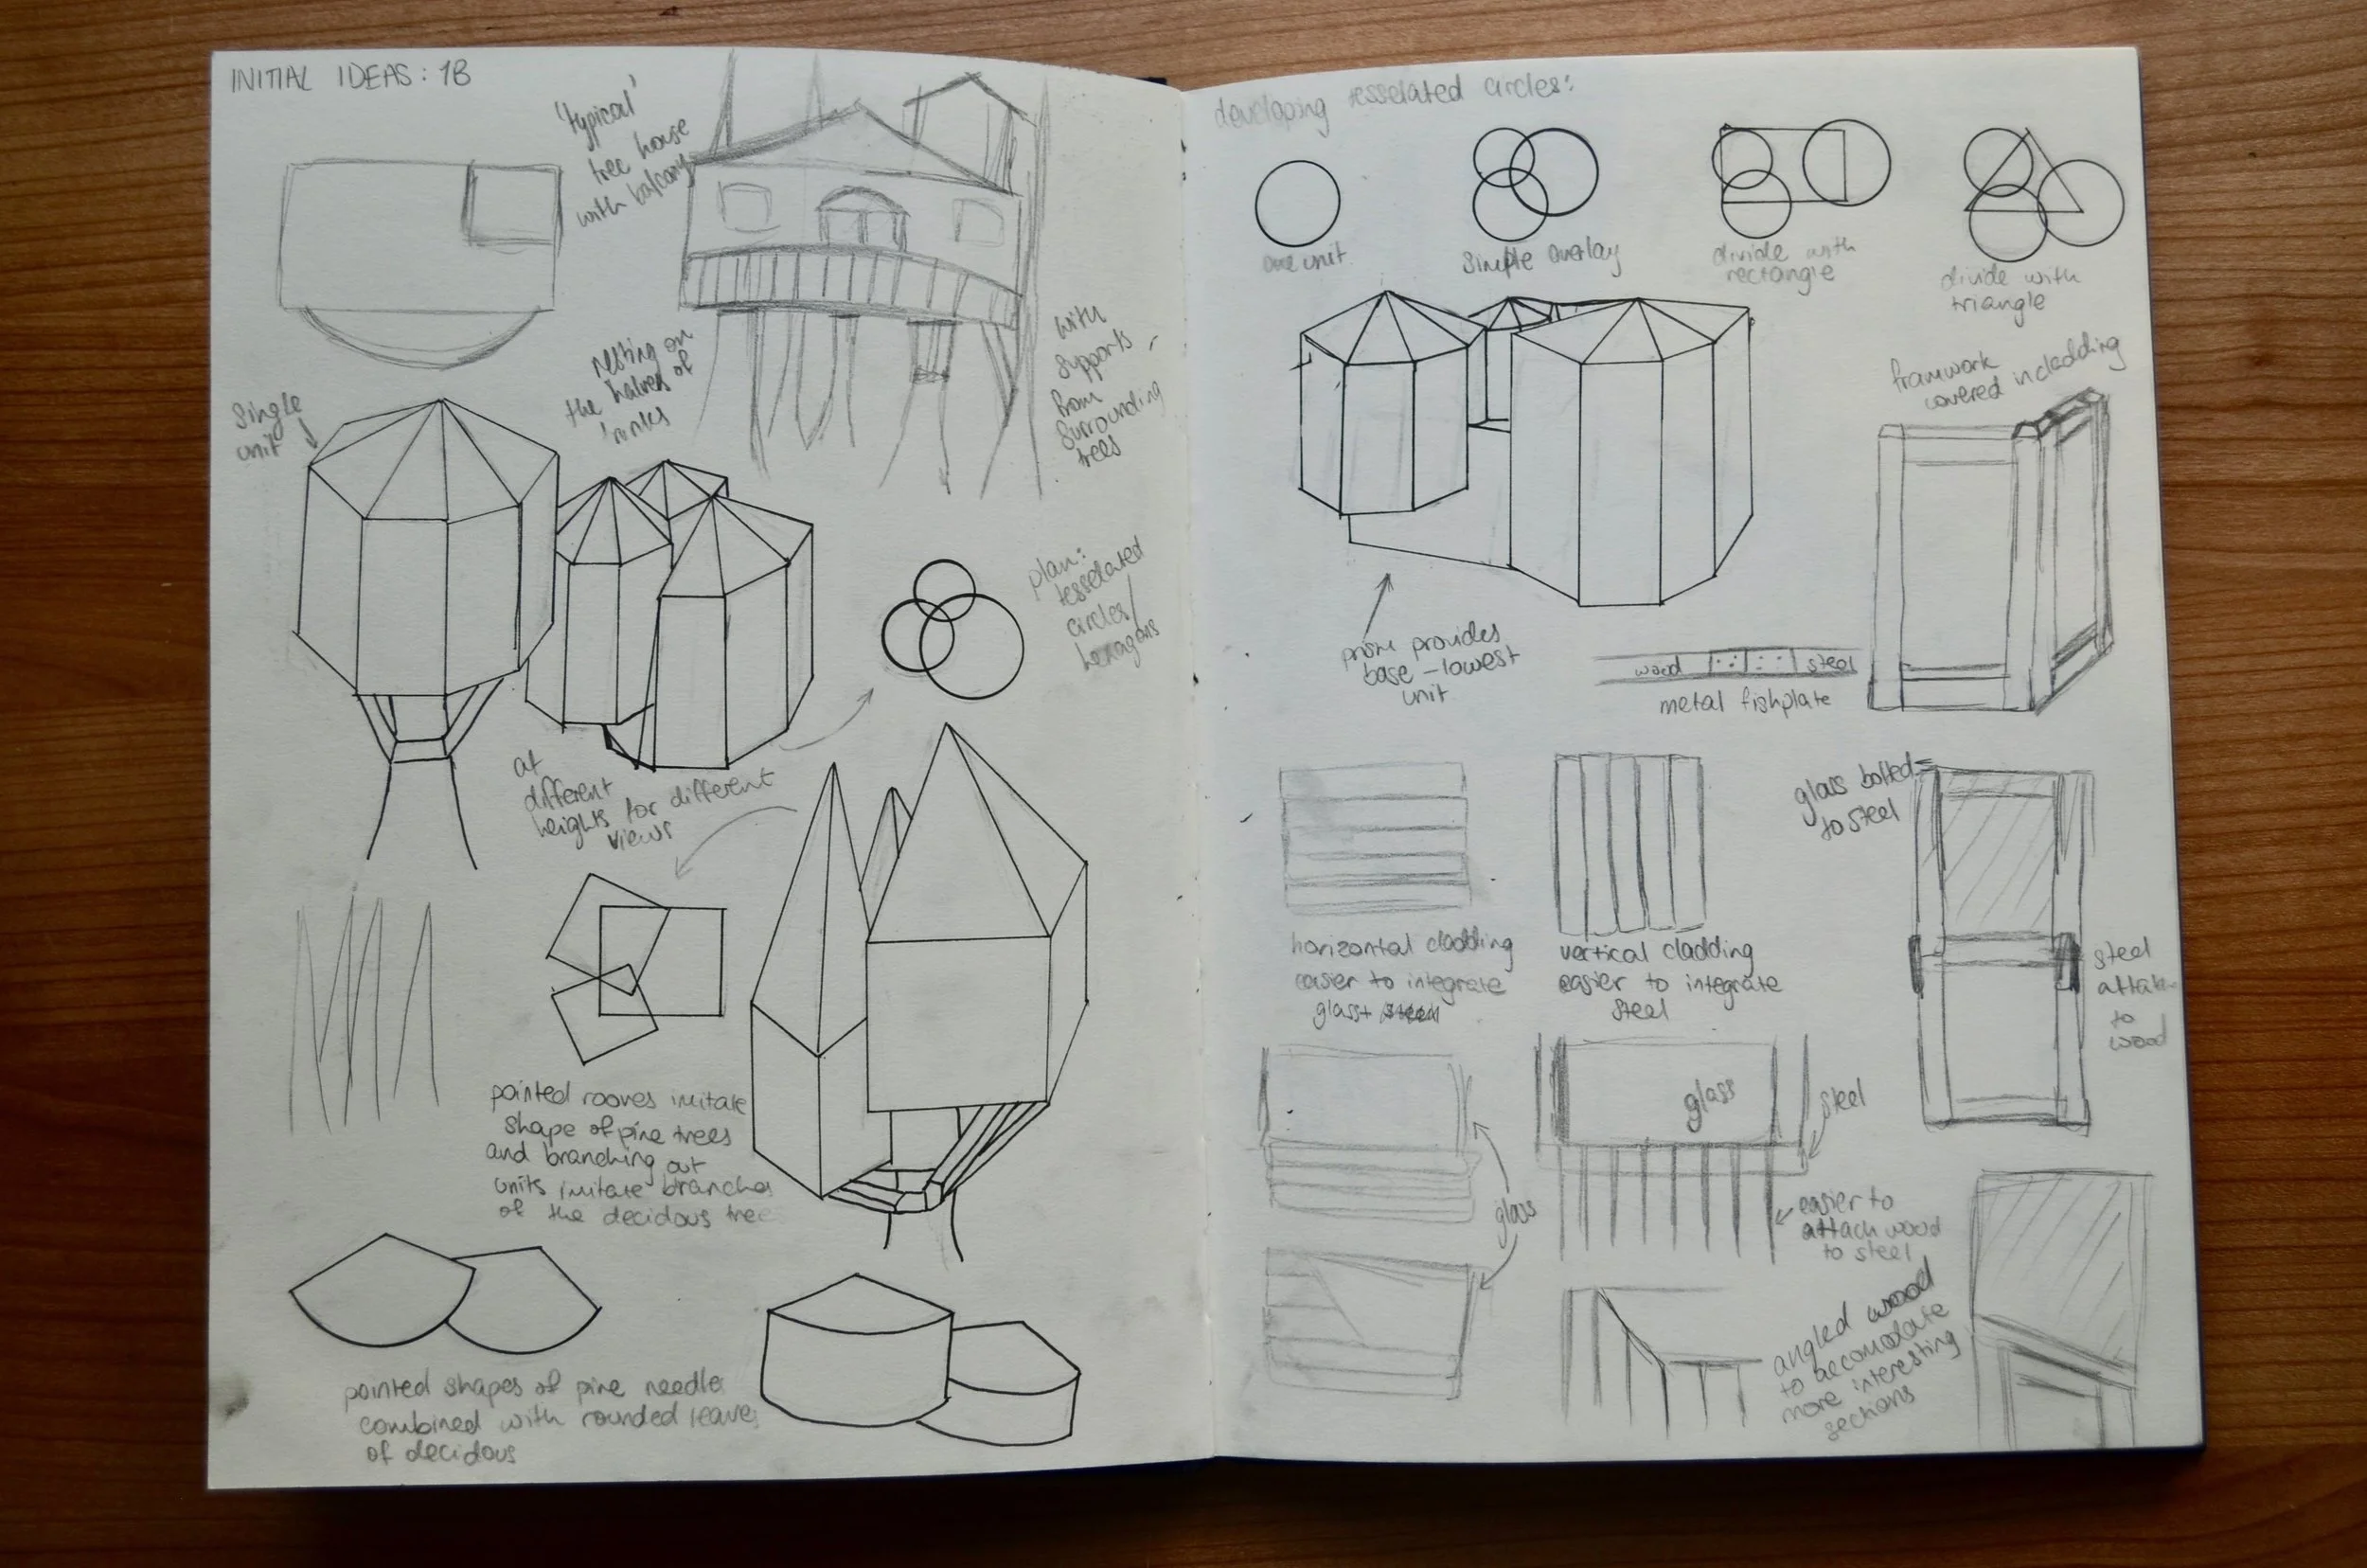 INITIAL IDEAS: 1B
'typical'
tree house
with balcony
with
supports
from
surrounding
trees
single
unit
resting on
the halves of
at
different
heights for different
views
plan:
tesselated
circles/
hexagons
pointed rooves imitate
shape of pine trees
and branching out
units imitate branches
of the decidous tree
pointed shapes of pine needle
combined with rounded leaves
of decidous
developing tesselated circles:
one unit
simple overlay
divide with
rectangle
divide with
triangle
framwork
covered in cladding
provides
base - lowest
unit
wood
steel
metal fishplate
horizontal cladding
easier to integrate
glass steel
vertical cladding
easier to integrate
steel
glass bolted
to steel
steel
attatch
to
wood
glass
steel
glass
easier to
attach wood
to steel
angled wood
to accomodate
more interesting
sections